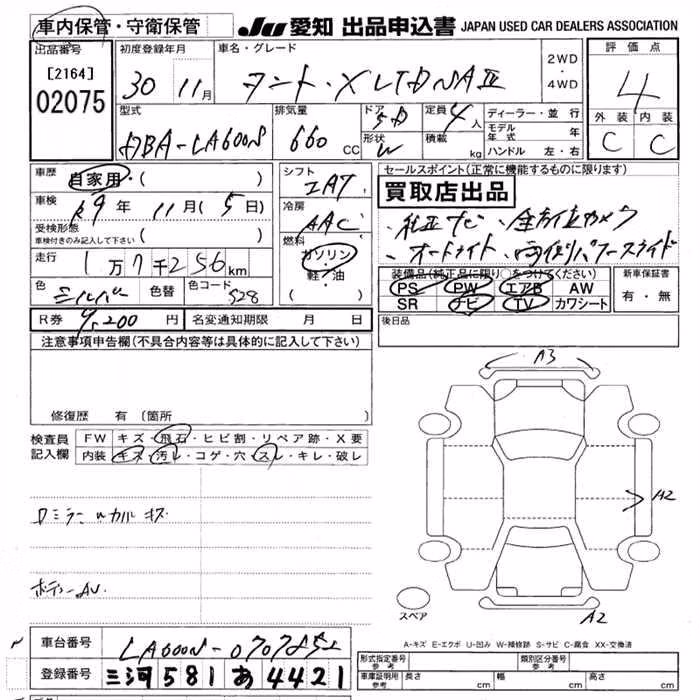 車内保管・守衛保管 JU 愛知 出品申込書 JAPAN USED CAR DEALERS ASSOCIATION
出品番号 [2164] 02075
初度登録年月 30 11月
車名・グレード タント・X LTD SAⅢ
2WD・4WD
評価点 4
外装 C 内装 C
型式 DBA-LA600S
排気量 660 CC
ドア 5D
形状 W
定員 4人
積載 kg
ディーラー・並行
モデル年式 年
ハンドル 左・右
車歴 自家用・( )
車検 R9年 11月(5日)
受検形態
車検付きのみ記入して下さい ( )
走行 1万7千256km
色 シルバー 色替 色コード S28
シフト IAT
冷房 AAC
燃料 ガソリン・軽・油
セールスポイント(正常に機能するものに限ります)
買取店出品
・純正ナビ・全方位カメラ
・オートライト・両側パワースライド
装備品(純正品に限り○をつけてください)
PS PW エアB AW
SR ナビ TV カワシート
新車保証書 有・無
R券 9,200円 名変通知期限 月 日
後日品
注意事項申告欄(不具合内容等は具体的に記入して下さい)
修復歴 有 〔箇所
検査員記入欄
FW キズ・飛石・ヒビ割・リペア跡・X要
内装 キズ・汚レ・コゲ・穴・スレ・キレ・破レ
Dミラーウカルキズ
ボディーAU
A3
A2
A2
スペア
A-キズ E-エクボ U-凹み W-補修跡 S-サビ C-腐食 XX-交換済
車台番号 LA600S-
登録番号 三河 581 あ 4421
形式指定番号 参考
類別区分番号 参考
車庫証明用 参考 長さ cm 幅 cm 高さ cm